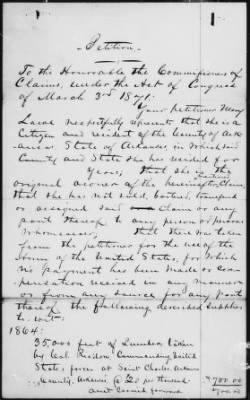 Petition.
To the Honorable the Commissioners of
Claims, under the Act of Congress
of March 3rd 1871.
Your petitioner Mary
respectfully represents that she is a
Citizen and resident of the County of Ark-
ansas State of Arkansas, in which said
County and State she has resided for
years; that she is the
original owner of the hereinafter Claim
that she has not sold, bartered, transferred
or assigned said Claim or any
part thereof to any person or persons
whomsoever; that there was taken
from the petitioner for the use of the
Army of the United States, for which
no payment has been made or com-
pensation received in any manner
or from any source for any part
thereof the following described supplies
to wit:
1864:
35,000 feet of Lumber taken
by Col. Commanding United
States forces at Saint Charles, Arkansas
County, Arkansas, @ $20 per thousand $700.00
amt carried forward 700.00